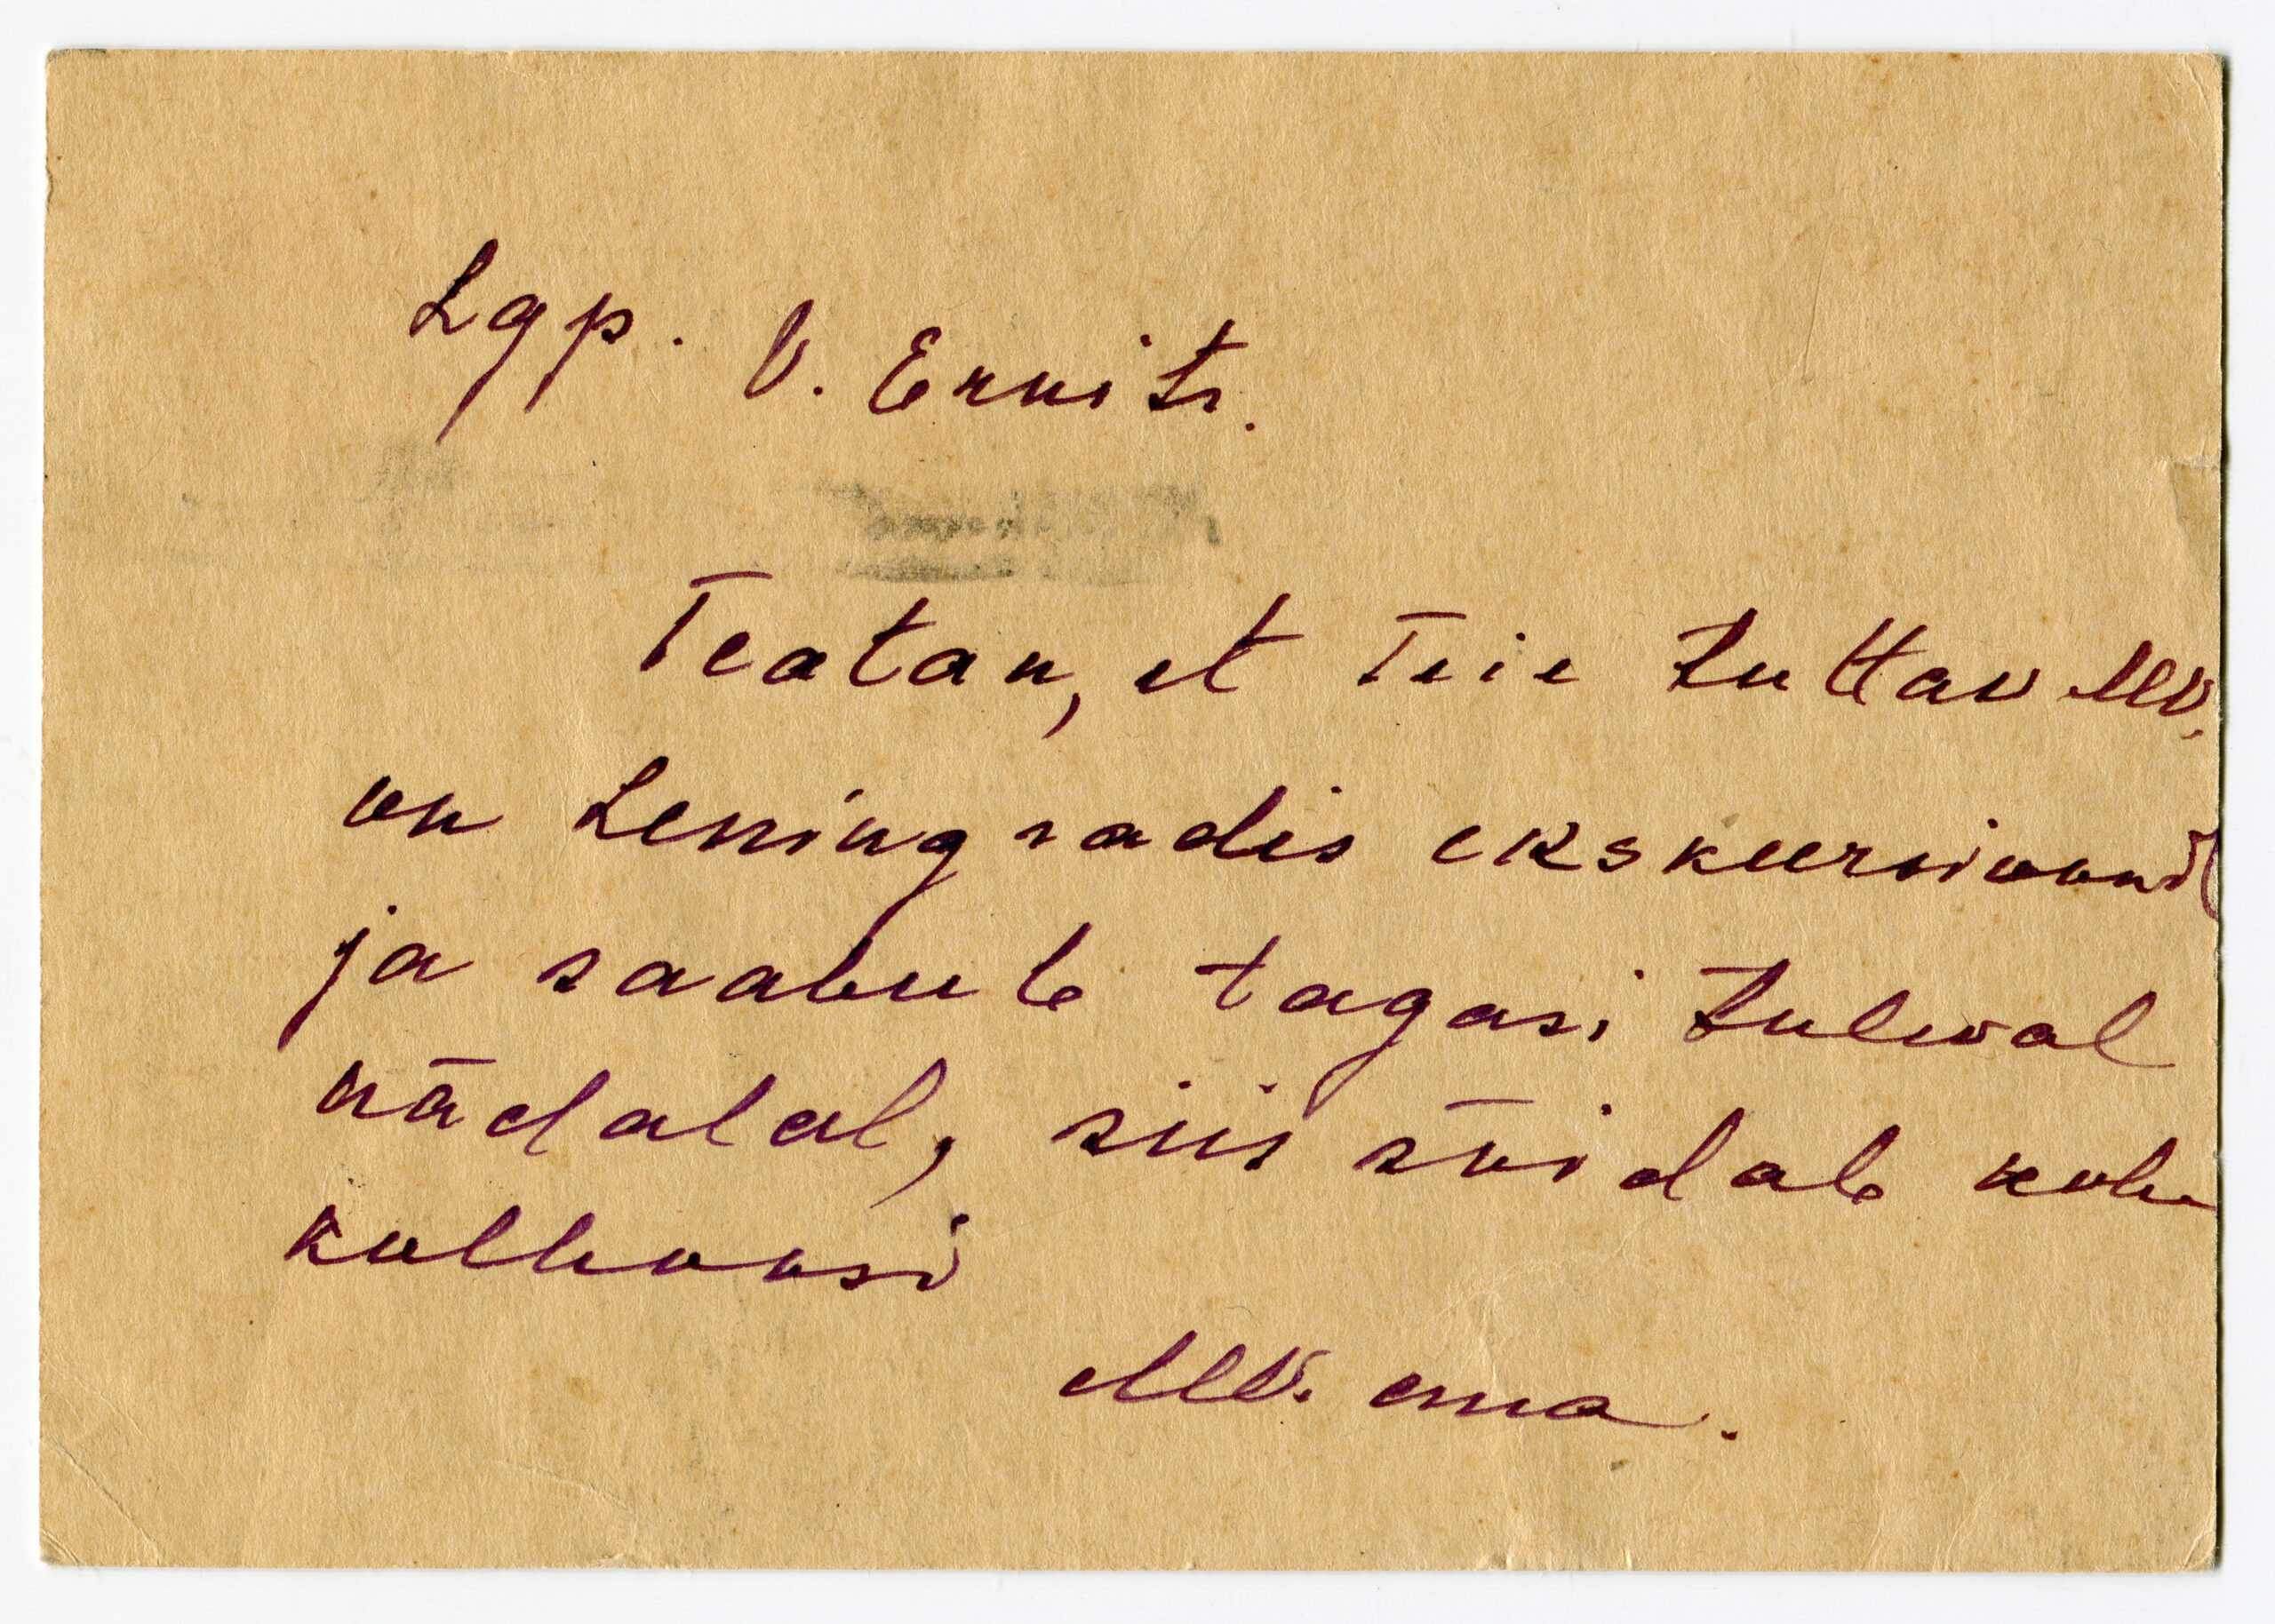 Lgp. V. Ernits.
Teatan, et Teie tuttav M.V.
on Leningradis ekskursioonil
ja saabub tagasi tuleval
nädalal, siis sõidab kohe
kolhoosi
M.V. ema.